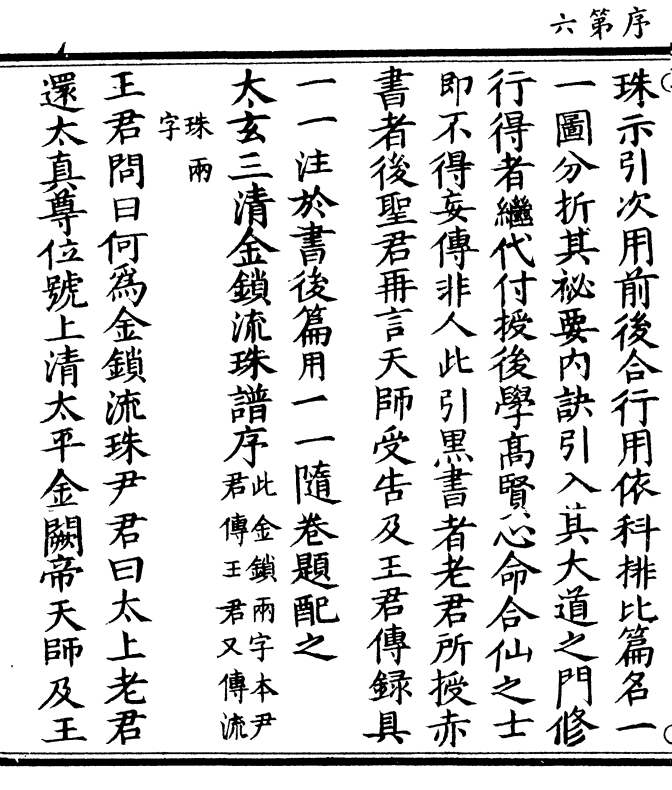 序第六
珠示引次用前後合行用依科排比篇名一
一圖分折其祕要内訣引入其大道之門修
行得者繼代付授後學髙賢心命合仙之士
即不得妄傳非人此引黒書者老君所授赤
書者後聖君再言天師受告及王君傳録具
一一注於書後篇用一一隨卷題配之
太玄三清金鎖流珠譜序此金鎖兩字本尹
君傳王君又傳流
珠兩
字
王君問曰何爲金鎖流珠尹君曰太上老君
還太真尊位號上清太平金闕帝天師及王